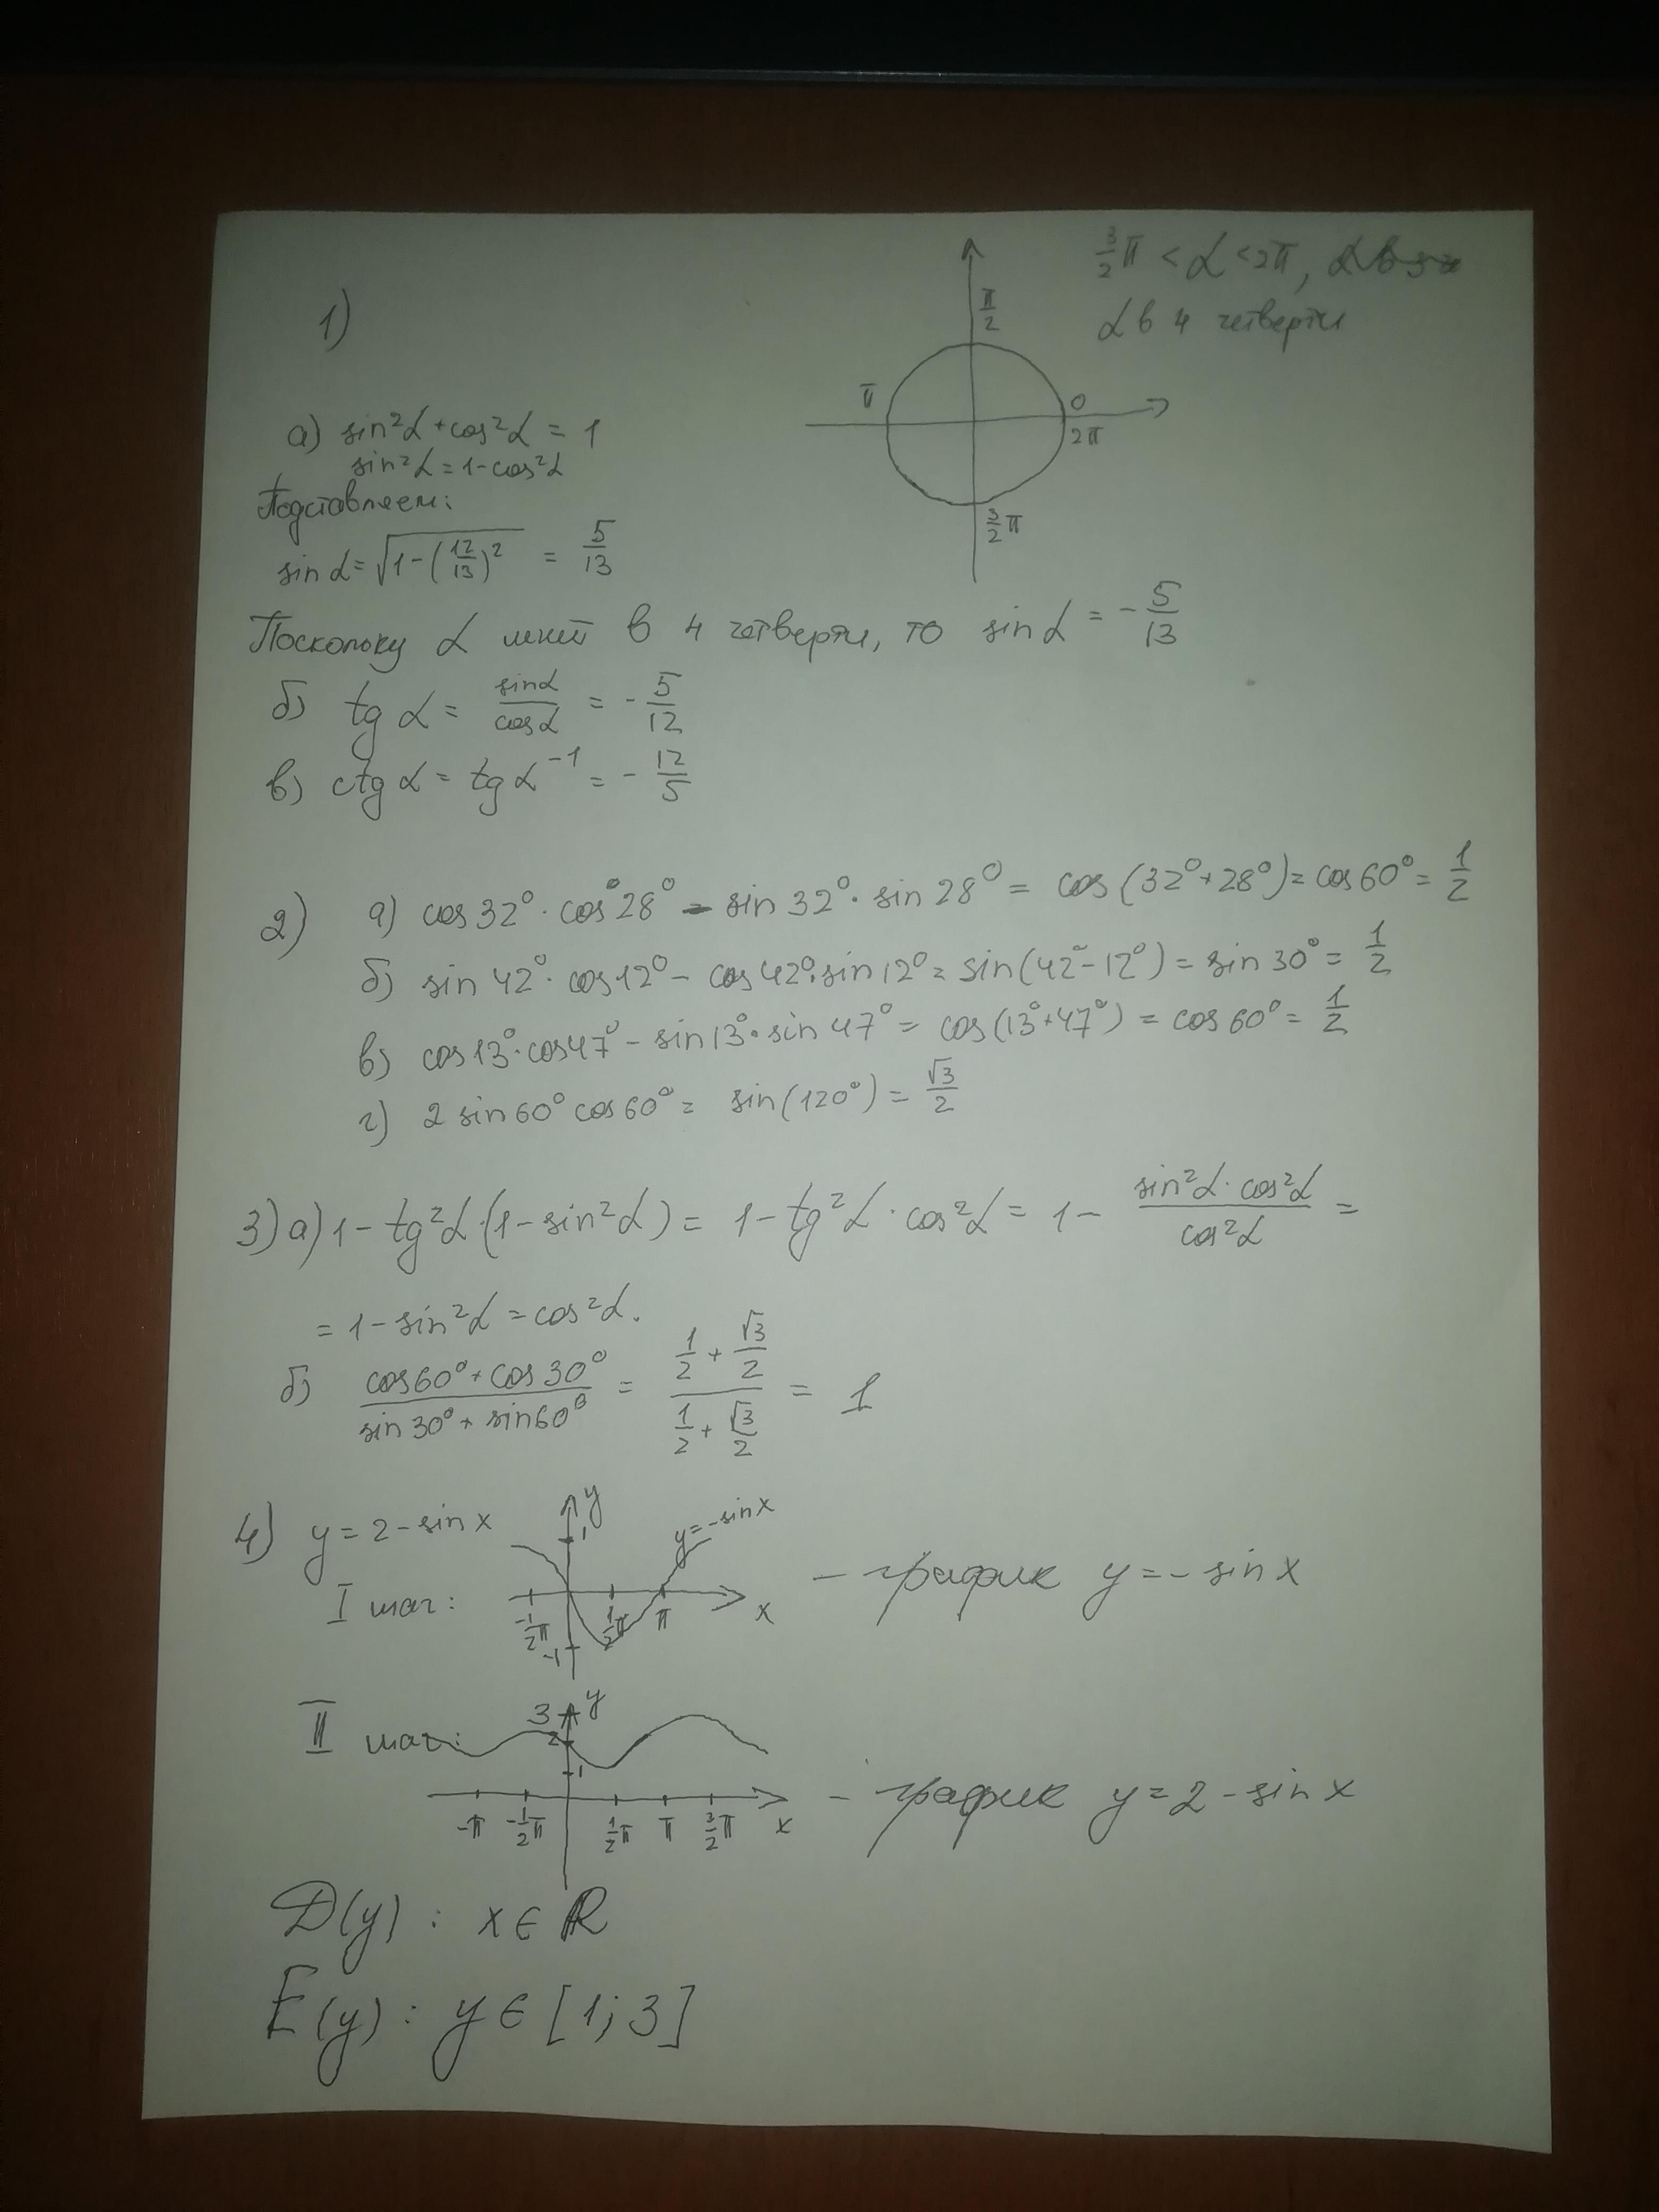 1)
3/2 π < α < 2π,
α в 4 четверти
π/2
π
0
2π
3/2 π
а) sin²α + cos²α = 1
sin²α = 1 - cos²α
Подставляем:
sin α = √(1 - (12/13)²) = 5/13
Поскольку α в 4 четверти, то sin α = - 5/13
б) tg α = sinα/cosα = - 5/12
в) ctg α = tg α⁻¹ = - 12/5
2) а) cos 32° · cos 28° - sin 32° · sin 28° = cos (32° + 28°) = cos 60° = 1/2
б) sin 42° · cos 12° - cos 42° · sin 12° = sin (42° - 12°) = sin 30° = 1/2
в) cos 13° · cos 47° - sin 13° · sin 47° = cos (13° + 47°) = cos 60° = 1/2
г) 2 sin 60° cos 60° = sin (120°) = √3/2
3) а) 1 - tg²α · (1 - sin²α) = 1 - tg²α · cos²α = 1 - (sin²α · cos²α)/cos²α =
= 1 - sin²α = cos²α.
б) (cos 60° + cos 30°)/(sin 30° + sin 60°) = (1/2 + √3/2)/(1/2 + √3/2) = 1
4) y = 2 - sin x
y
1
y = -sin x
I шаг:
-1/2 π
1/2 π
π
x
-1
- график y = - sin x
II шаг:
3
y
2
1
-π
-1/2 π
1/2 π
π
3/2 π
x
- график y = 2 - sin x
D(y) : x ∈ R
E(y) : y ∈ [1; 3]